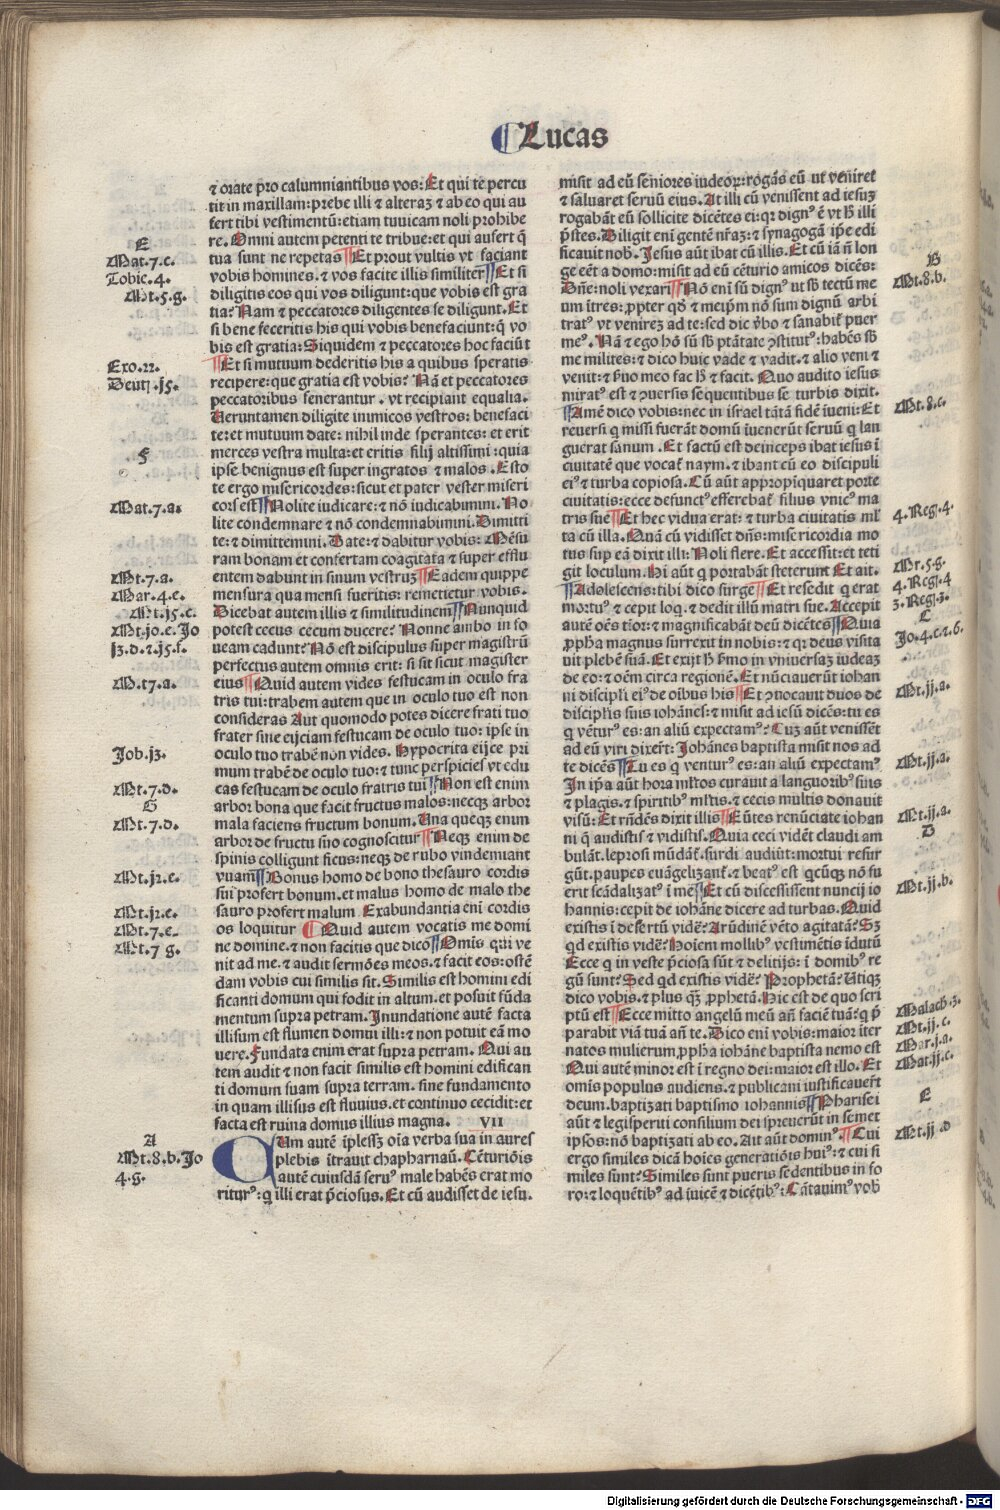 Lucas
⁊ orate pro calumniantibus vos: Et qui te percu
tit in maxillam: prebe illi ⁊ alterā. ⁊ ab eo qui au
fert tibi vestimentū: etiam tunicam noli prohibe
re. Omni autem petenti te tribue: et qui aufert q̄
tua sunt ne repetas Et prout vultis vt faciant
vobis homines. ⁊ vos facite illis similiter Et si
diligitis eos qui vos diligunt: que vobis est gra
tia? Nam ⁊ peccatores diligentes se diligunt. Et
si bene feceritis his qui vobis benefaciunt: q̄ vo
bis est gratia: Siquidem ⁊ peccatores hoc faciūt
Et si mutuum dederitis his a quibus speratis
recipere: que gratia est vobis? Nā et peccatores
peccatoribus fenerantur. vt recipiant equalia.
Ueruntamen diligite inimicos vestros: benefaci
te: et mutuum date: nihil inde sperantes: et erit
merces vestra multa: et eritis filij altissimi: quia
ipse benignus est super ingratos ⁊ malos. Esto
te ergo misericordes: sicut et pater vester miseri
cors est Nolite iudicare: ⁊ nō iudicabimini. No
lite condemnare ⁊ nō condemnabimini. Dimitti
te: ⁊ dimittemini. Date: ⁊ dabitur vobis: Mēsu
ram bonam et confertam coagitata ⁊ super efflu
entem dabunt in sinum vestruʒ Eadem quippe
mensura qua mensi fueritis: remetietur vobis.
Dicebat autem illis ⁊ similitudinem Nunquid
potest cecus cecum ducere? Nonne ambo in fo
ueam cadunt? Nō est discipulus super magistrū
perfectus autem omnis erit: si sit sicut magister
eius Quid autem vides festucam in oculo fra
tris tui: trabem autem que in oculo tuo est non
consideras Aut quomodo potes dicere frati tuo
frater sine eijciam festucam de oculo tuo: ipse in
oculo tuo trabē non vides. Hypocrita eijce pri
mum trabē de oculo tuo: ⁊ tunc perspicies vt edu
cas festucam de oculo fratris tui Non est enim
arbor bona que facit fructus malos: necqʒ arbor
mala faciens fructum bonum. Una queqʒ enim
arbor de fructu suo cognoscitur Neqʒ enim de
spinis colligunt ficus: neqʒ de rubo vindemiant
vuam Bonus homo de bono thesauro cordis
sui profert bonum. et malus homo de malo the
sauro profert malum Exabundantia eni cordis
os loquitur Quid autem vocatis me domi
ne domine. ⁊ non facitis que dico Omīs qui ve
nit ad me. ⁊ audit sermōes meos. ⁊ facit eos: ostē
dam vobis cui similis sit. Similis est homini edi
ficanti domum qui fodit in altum. et posuit fūda
mentum supra petram. Inundatione autē facta
illisum est flumen domui illi: ⁊ non potuit eā mo
uere. Fundata enim erat supra petram. Qui au
tem audit ⁊ non facit similis est homini edifican
ti domum suam supra terram. sine fundamento
in quam illisus est fluuius. et continuo cecidit: et
facta est ruina domus illius magna. VII
CUm autē īplesset oīa verba sua in aures
plebis ītrauit chapharnaū. Cēturiōis
autē cuiusdā seruꝰ male habēs erat mo
riturꝰ: q illi erat p̄ciosus. Et cū audisset de iesu.
E
Mat.7.c.
Tobic.4.
Mt.5.g.
Exo.22.
Deutj.j5.
F
Mat.7.a.
Mt.7.a.
Mar.4.e.
Mt.j5.c.
Mt.jo.e. Jo
j3.d.⁊.j5.f.
M.t7.a.
Job.j3.
Mt.7.d.
G
Mt.7.d.
Mt.j2.e.
Mt.j2.e.
Mt.7.e.
Mt.7 g.
A
Mt.8.b. Jo
4.g.
misit ad eū seniores iudeoꝝ: rogās eū vt veniret
⁊ saluaret seruū eius. At illi cū venissent ad iesuʒ
rogabāt eū sollicite dicētes ei: qꝛ dignꝰ ē vt h̄ illi
p̄stes. Diligit eni gentē nr̄aʒ: ⁊ synagogā ip̄e edi
ficauit nob̄. Jesus aūt ibat cū illis. Et cū iā n̄ lon
ge eēt a domo: misit ad eū cēturio amicos dicēs:
Dn̄e: noli vexari Nō eni sū dignꝰ ut sb̄ tectū me
um ītres: ꝓpter qd̄ ⁊ meip̄m nō sum dignū arbi
tratꝰ vt venirē ad te: sed dic v̄bo ⁊ sanabit̄ puer
meꝰ. Nā ⁊ ego hō sū sb̄ ptāte ꝯstitutꝰ: habēs sb̄
me milites: ⁊ dico huic vade ⁊ vadit. ⁊ alio veni ⁊
venit: ⁊ s̄uo meo fac h̄ ⁊ facit. Quo audito iesus
miratꝰ est ⁊ ꝯuersis sequentibus se turbis dixit.
Amē dico vobis: nec in israel tātā fidē īueni: Et
reuersi q missi fuerāt domū īuenerūt seruū q lan
guerat sanum. Et factū est deinceps ibat iesus ī
ciuitatē que vocat̄ naym. ⁊ ibant cū eo discipuli
eiꝰ ⁊ turba copiosa. Cū aūt appropīquaret porte
ciuitatis: ecce defunctꝰ efferebat̄ filius vnicꝰ ma
tris sue Et hec vidua erat: ⁊ turba ciuitatis ml̄
ta cū illa. Quā cū vidisset dn̄s: misericordia mo
tus sup eā dixit illi: Noli flere. Et accessit: et teti
git loculum. Hi aūt q portabāt steterunt Et ait.
Adolescens: tibi dico surge Et resedit q erat
mortuꝰ ⁊ cepit loq. ⁊ dedit illū matri sue. Accepit
autē oēs tīor: ⁊ magnificabāt deū dicētes Quia
ꝓpha magnus surrexit in nobis: ⁊ qꝛ deus visita
uit plebē suā. Et exijt h̄ s̄mo in vniuersaʒ iudeaʒ
de eo: ⁊ oēm circa regionē. Et nūciauerūt iohan
ni discipl̄i eiꝰ de oībus his Et ꝯuocauit duos de
discipl̄is suis iohānes: ⁊ misit ad iesū dicēs: tu es
q vēturꝰ es: an aliū expectamꝰ? Cuʒ aūt venissēt
ad eū viri dixer̄t: Johānes baptista misit nos ad
te dicēs Tu es q venturꝰ es: an aliū expectamꝰ
In ip̄a aūt hora ml̄tos curauit a languoribꝰ suis
⁊ plagis. ⁊ spiritibꝰ ml̄tis. ⁊ cecis multis donauit
visū: Et rn̄dēs dixit illis Eūtes renūciate iohan
ni q̄ audistis ⁊ vidistis. Quia ceci vidēt claudi am
bulāt. leprosi mūdāt̄. surdi audiūt: mortui resur
gūt. paupes euāgelizant̄. ⁊ beatꝰ est qcūqʒ nō fu
erit scādalizatꝰ ī mē Et cū discessissent nuncij io
hannis: cepit de iohāne dicere ad turbas. Quid
existis ī desertū vidē? Arūdinē vēto agitatā? Sʒ
qd existis vidē? Hoiem mollibꝰ vestimētis īdutū
Ecce q in veste p̄ciosa sūt ⁊ delitijs: ī domibꝰ re
gū sunt? Sed qd existis vidē? Prophetā? Utiqʒ
dico vobis. ⁊ plus q̄ʒ ꝓphetā. Hic est de quo scri
ptū est Ecce mitto angelū meū an̄ faciē tuā: q p̄
parabit viā tuā an̄ te. Dico eni vobis: maior iter
natos mulierum ꝓpha iohāne baptista nemo est
Qui autē minor est ī regno dei: maior est illo. Et
omīs populus audiens. ⁊ publicani iustificauer̄t
deum. baptizati baptismo iohannis Pharisei
aūt ⁊ legisperiti consilium dei spreuerūt in semet
ipsos: nō baptizati ab eo. Ait aūt dominꝰ. Cui
ergo similes dicā hoīes generatiōis huiꝰ: ⁊ cui si
miles sunt? Similes sunt pueris sedentibus in fo
ro: ⁊ loquētibꝰ ad īuicē ⁊ dicētibꝰ: Cātauimꝰ vob̄
B
Mt.8.b.
Mt.8.c.
4.Reg.4.
Mr.5.g.
4.Reg.4
3.Reg.3.
C
Jo.4.c.⁊.6.
Mt.jj.a.
Mt.jj.a.
Mt.jj.a.
D
Mt.jj.b.
Malach.3.
Mt.jj.c.
Mar.j.a.
Mat.jj.c.
E
Mt.jj d
Digitalisierung gefördert durch die Deutsche Forschungsgemeinschaft - DFG